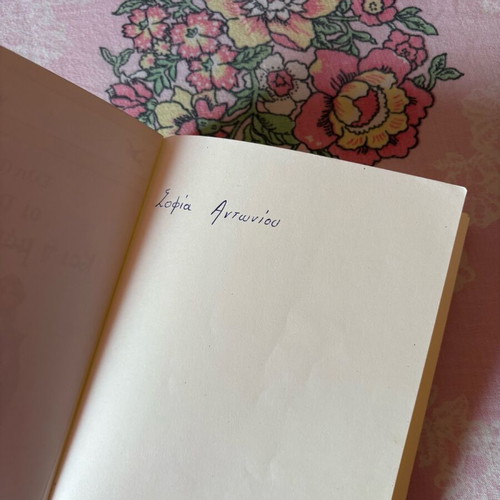 Σοφία Αντωνίου